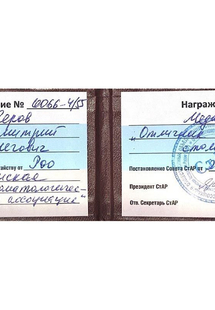 ние № 6066-4/55
еров
митрий
легович
айству от РОО
нская
оматологичес-
ассоциация"
Награж
Меда
"Отличник
стома
Постановление Совета СтАР от
Президент СтАР
Отв. Секретарь СтАР